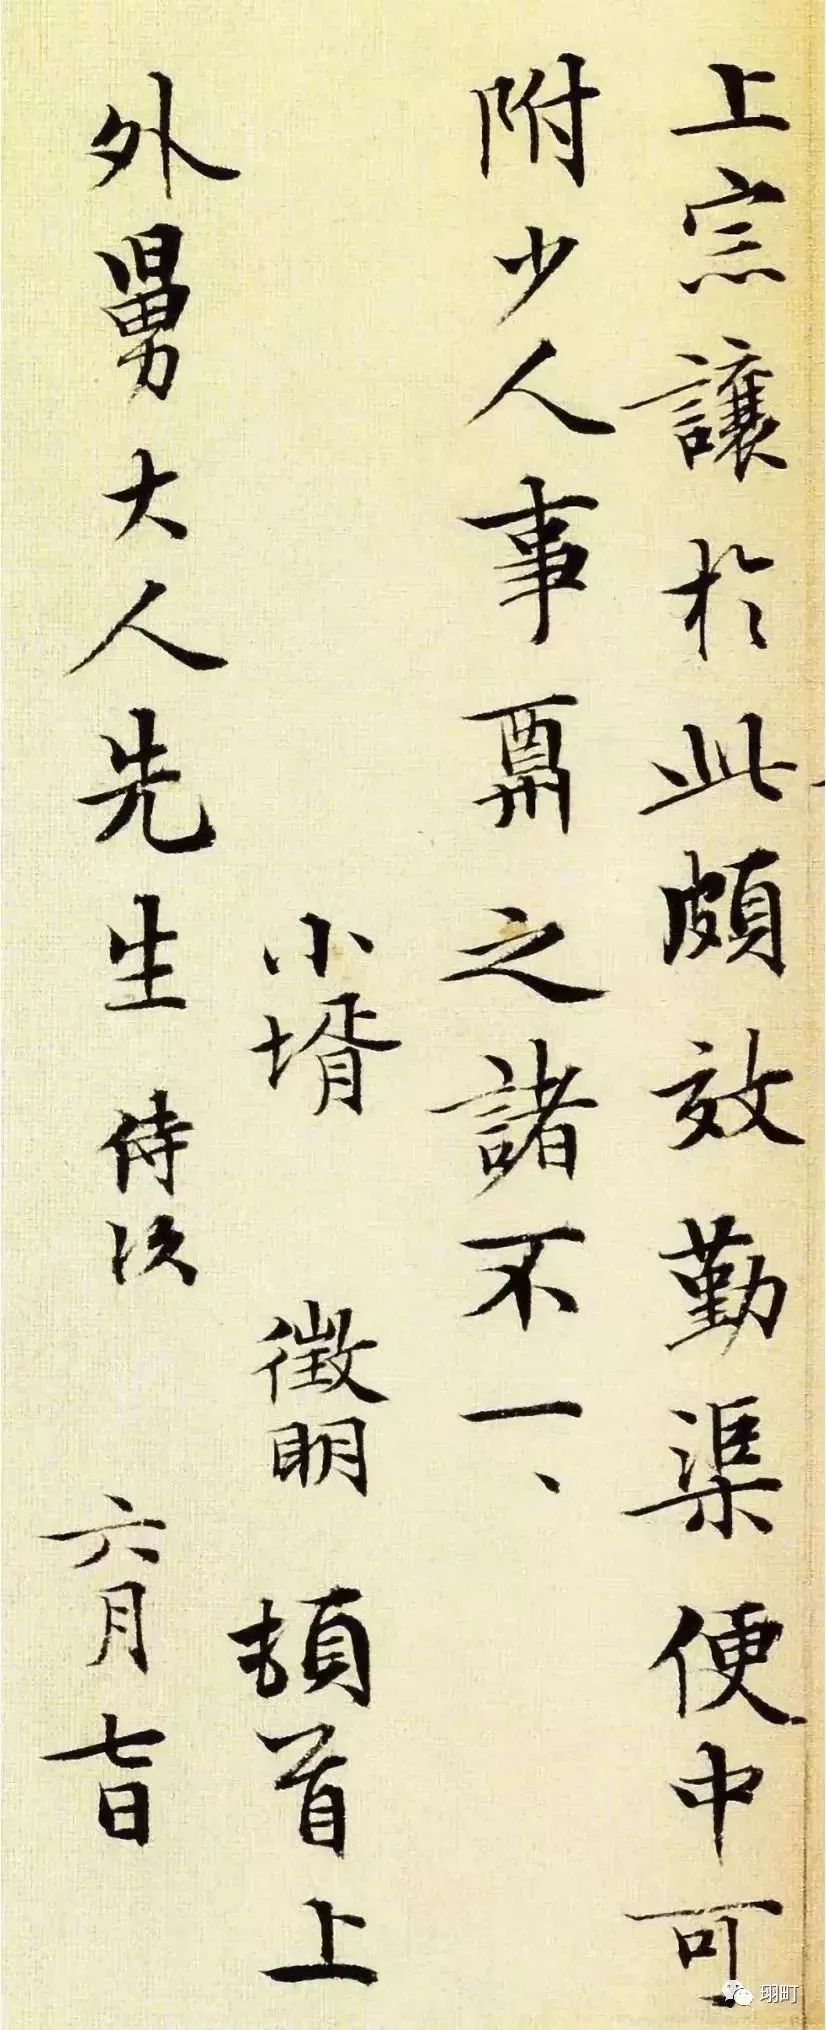 上宗讓於此頗效勤渠便中可
附少人事
之諸不一、
小壻 徵明 頓首上
外舅大人先生侍次 六月七日
珝町